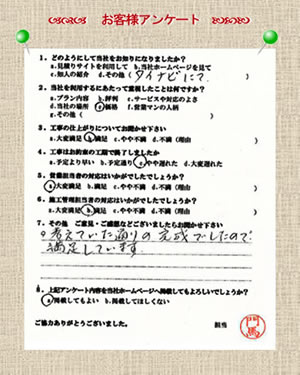 お客様アンケート
1．どのようにして当社をお知りになりましたか？
a.見積りサイトを利用して　b.当社ホームページを見て
c.知人の紹介　d.その他（タイナビにて.
2．当社を利用するにあたって重視したことは何ですか？
a.プラン内容　b.評判　c.サービスや対応のよさ
d.当社の場所　e.価格　f.営業マンの人柄
g.その他（　　　）
3．工事の仕上がりについてお聞かせ下さい
a.大変満足　b.満足　c.やや不満　d.不満（理由　　　）
4．工事はお約束の工期で終了しましたか
a.予定より早い　b.予定通り　c.やや遅れた　d.大変遅れた
5．営業担当者の対応はいかがでしたでしょうか？
a.大変満足　b.満足　c.やや不満　d.不満（理由　　　）
6．施工管理担当者の対応はいかがでしたでしょうか？
a.大変満足　b.満足　c.やや不満　d.不満（理由　　　）
7．その他　ご意見・ご感想などございましたらお聞かせ下さい
考えていた通りの完成でしたので.
満足しています.
8．上記アンケート内容を当社ホームページへ掲載してもよろしいでしょうか？
a.掲載してもよい　b.掲載してほしくない
ご協力ありがとうございました。　担当　門馬